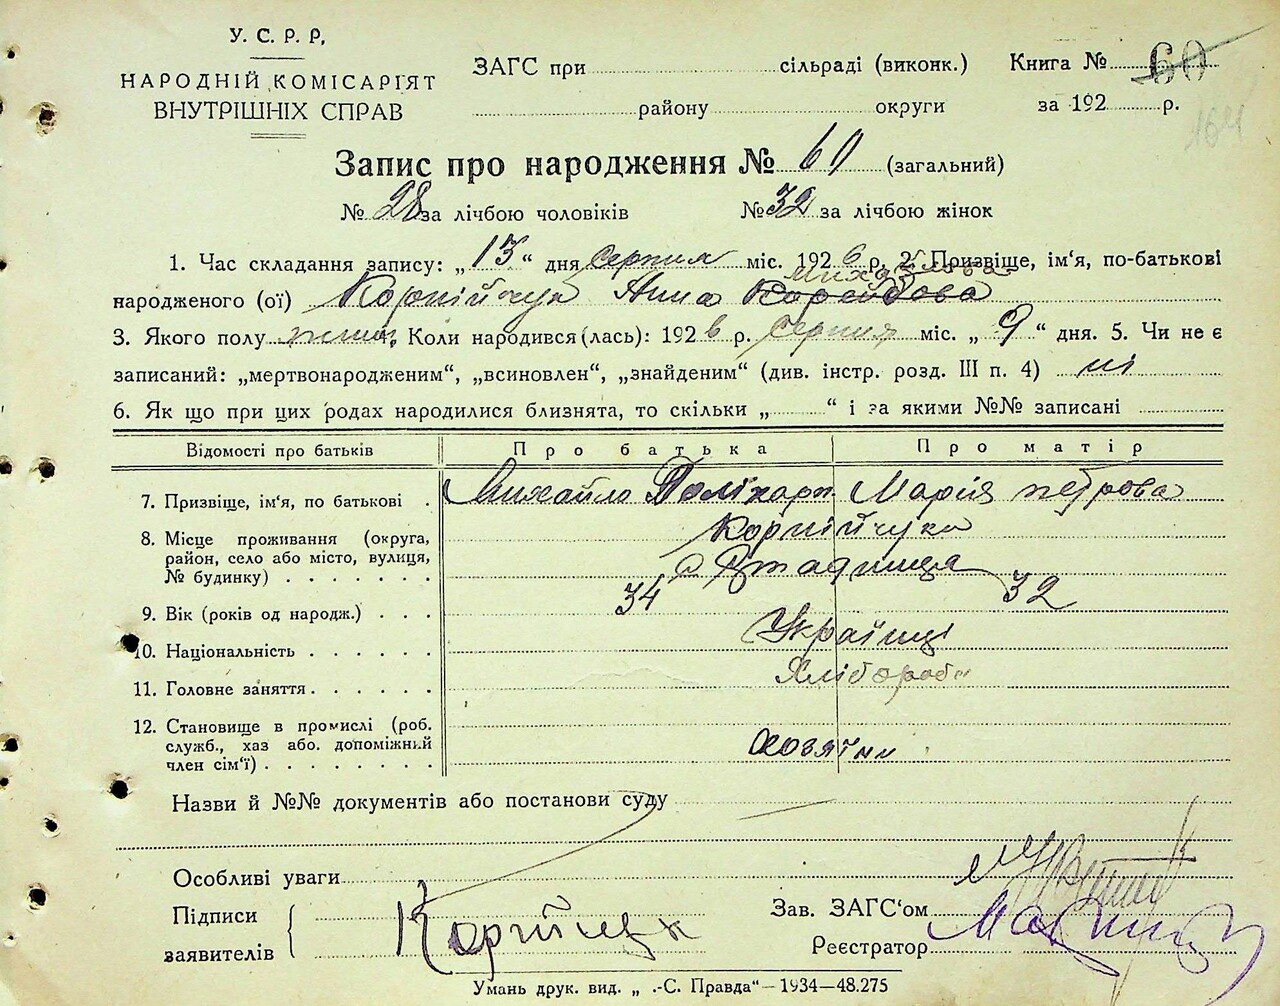 У. С. Р. Р.
НАРОДНІЙ КОМІСАРІЯТ
ВНУТРІШНІХ СПРАВ
ЗАГС при сільраді (виконк.) Книга № 60
району округи за 192 р.
164
Запис про народження № 60 (загальний)
№ 28 за лічбою чоловіків № 32 за лічбою жінок
1. Час складання запису: „13“ дня серпня міс. 1926 р. 2. Призвіще, ім'я, по-батькові
Михайлова
народженого (ої) Корнійчук Анна
3. Якого полу жін. Коли народився (лась): 1926 р. серпня міс. „9“ дня. 5. Чи не є
записаний: „мертвонародженим“, „всиновлен“, „знайденим“ (див. інстр. розд. III п. 4) ні
6. Як що при цих родах народилися близнята, то скільки „ “ і за якими №№ записані
Відомості про батьків Про батька Про матір
7. Призвіще, ім'я, по батькові Михайло Полікарп. Марія петрова
Корнійчуки
8. Місце проживання (округа,
район, село або місто, вулиця,
№ будинку)
9. Вік (років од народж.) 34 32
10. Національність Українці
11. Головне заняття Хлібороби
12. Становище в промислі (роб.
служб., хаз або. допоміжний
член сім'ї) хозяїни
Назви й №№ документів або постанови суду
Особливі уваги
Підписи
заявителів Корнійчук
Зав. ЗАГС'ом
Реєстратор
Умань друк. вид. „ .-С. Правда“—1934—48.275